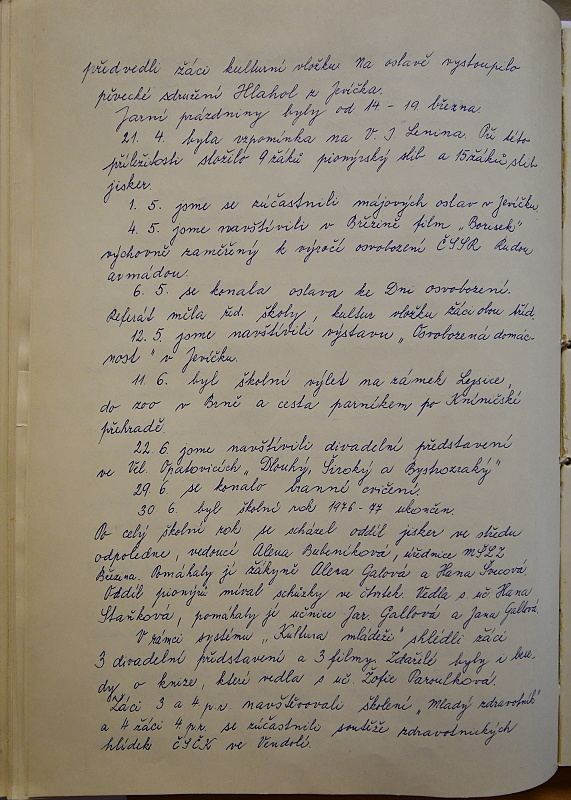 předvedli žáci kulturní vložku. Na oslavě vystoupilo
pěvecké sdružení Hlahol z Jevíčka.
Jarní prázdniny byly od 14 - 19. března.
21. 4. byla vzpomínka na V. I Lenina. Při této
příležitosti složilo 9 žáků pionýrský slib a 15 žáků slib
jisker.
1. 5. jsme se zúčastnili májových oslav v Jevíčku.
4. 5. jsme navštívili v Březině film „Borisek"
výchovně zaměřený k výročí osvobození ČSSR Rudou
armádou.
6. 5. se konala oslava ke Dni osvobození.
Referát měla řed. školy, kultur vložku žáci obou tříd.
12. 5. jsme navštívili výstavu „Osvobozená domác-
nost" v Jevíčku.
11. 6. byl školní výlet na zámek Lysice,
do zoo v Brně a cesta parníkem po Kníničské
přehradě.
22. 6. jsme navštívili divadelní představení
ve Vel. Opatovicích „Dlouhý, Široký a Bystrozraký"
29. 6. se konalo branné cvičení.
30 6. byl školní rok 1976-77 ukončen.
Po celý školní rok se scházel oddíl jisker ve středu
odpoledne, vedoucí Alena Bubeníková, úřednice MŠLZ
Březina. Pomáhaly jí žákyně Alena Galová a Hana Švecová
Oddíl pionýrů míval schůzky ve čtvrtek. Vedla s. uč Hana
Staňková, pomáhaly jí učnice Jar. Gallová a Jana Gallová.
V rámci systému „Kultura mládeži" shlédli žáci
3 divadelní představení a 3 filmy. Zdařilé byly i bese-
dy o knize, které vedla s. uč. Žofie Paroulková.
Žáci 3 a 4 p.r. navštěvovali školení „Mladý zdravotník"
a 4 žáci 4. p.r. se zúčastnili soutěže zdravotnických
hlídek ČSČK ve Vendolí.